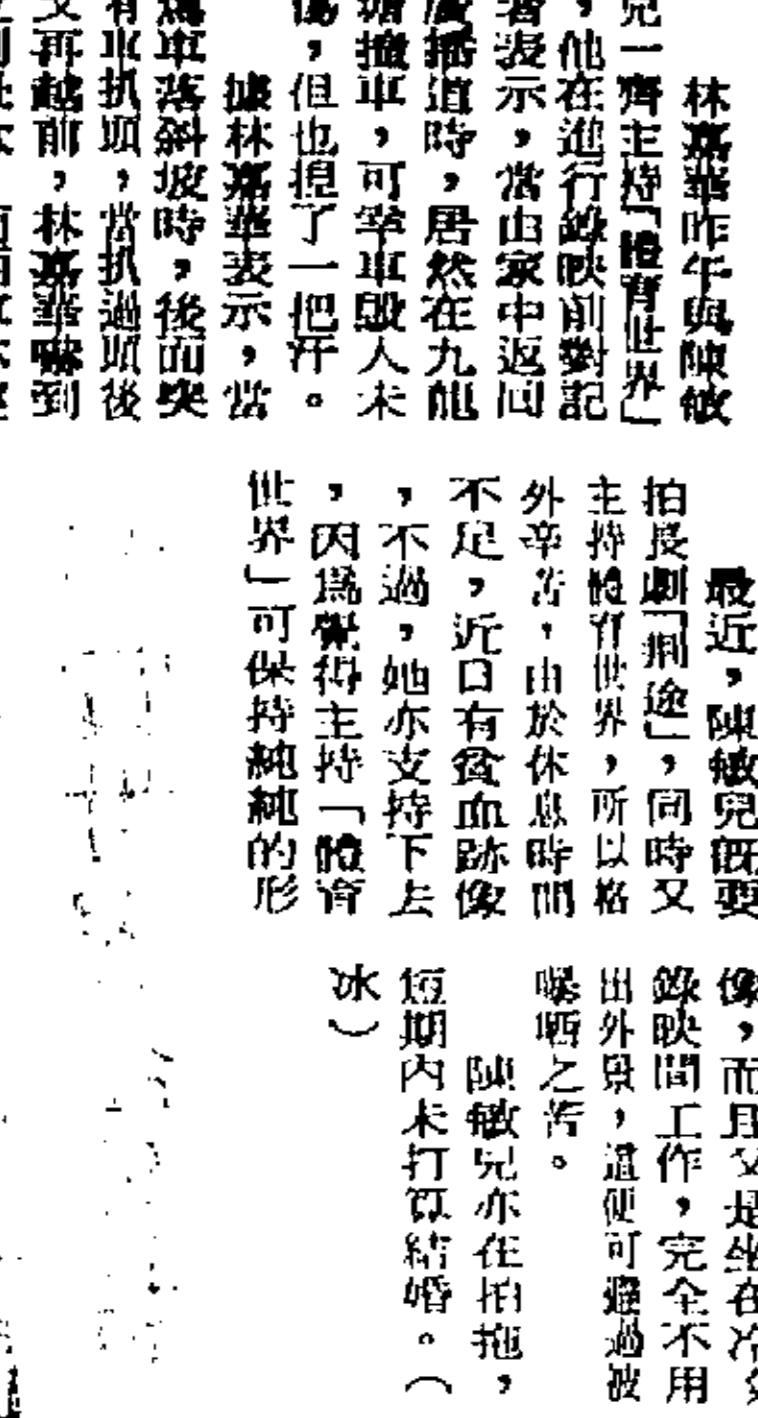 林嘉華昨午與陳敏
兒一齊主持「體育世界」
，他在進行錄映前對記
者表示，當由家中返回
廣播道時，居然在九龍
塘撞車，可幸車毀人未
傷，但也揑了一把汗。
據林嘉華表示，當
車落斜坡時，後面突
有車扒頭，當扒過頭後
又再越前，林嘉華嚇到
最近，陳敏兒既要
拍長劇「 途」，同時又
主持體育世界，所以格
外辛苦，由於休息時間
不足，近日有貧血跡像
，不過，她亦支持下去
，因爲覺得主持「體育
世界」可保持純純的形
像，而且又是坐在冷氣
錄映間工作，完全不用
出外景，這便可避過被
曝晒之苦。
陳敏兒亦在拍拖，
短期內未打算結婚。（
冰）